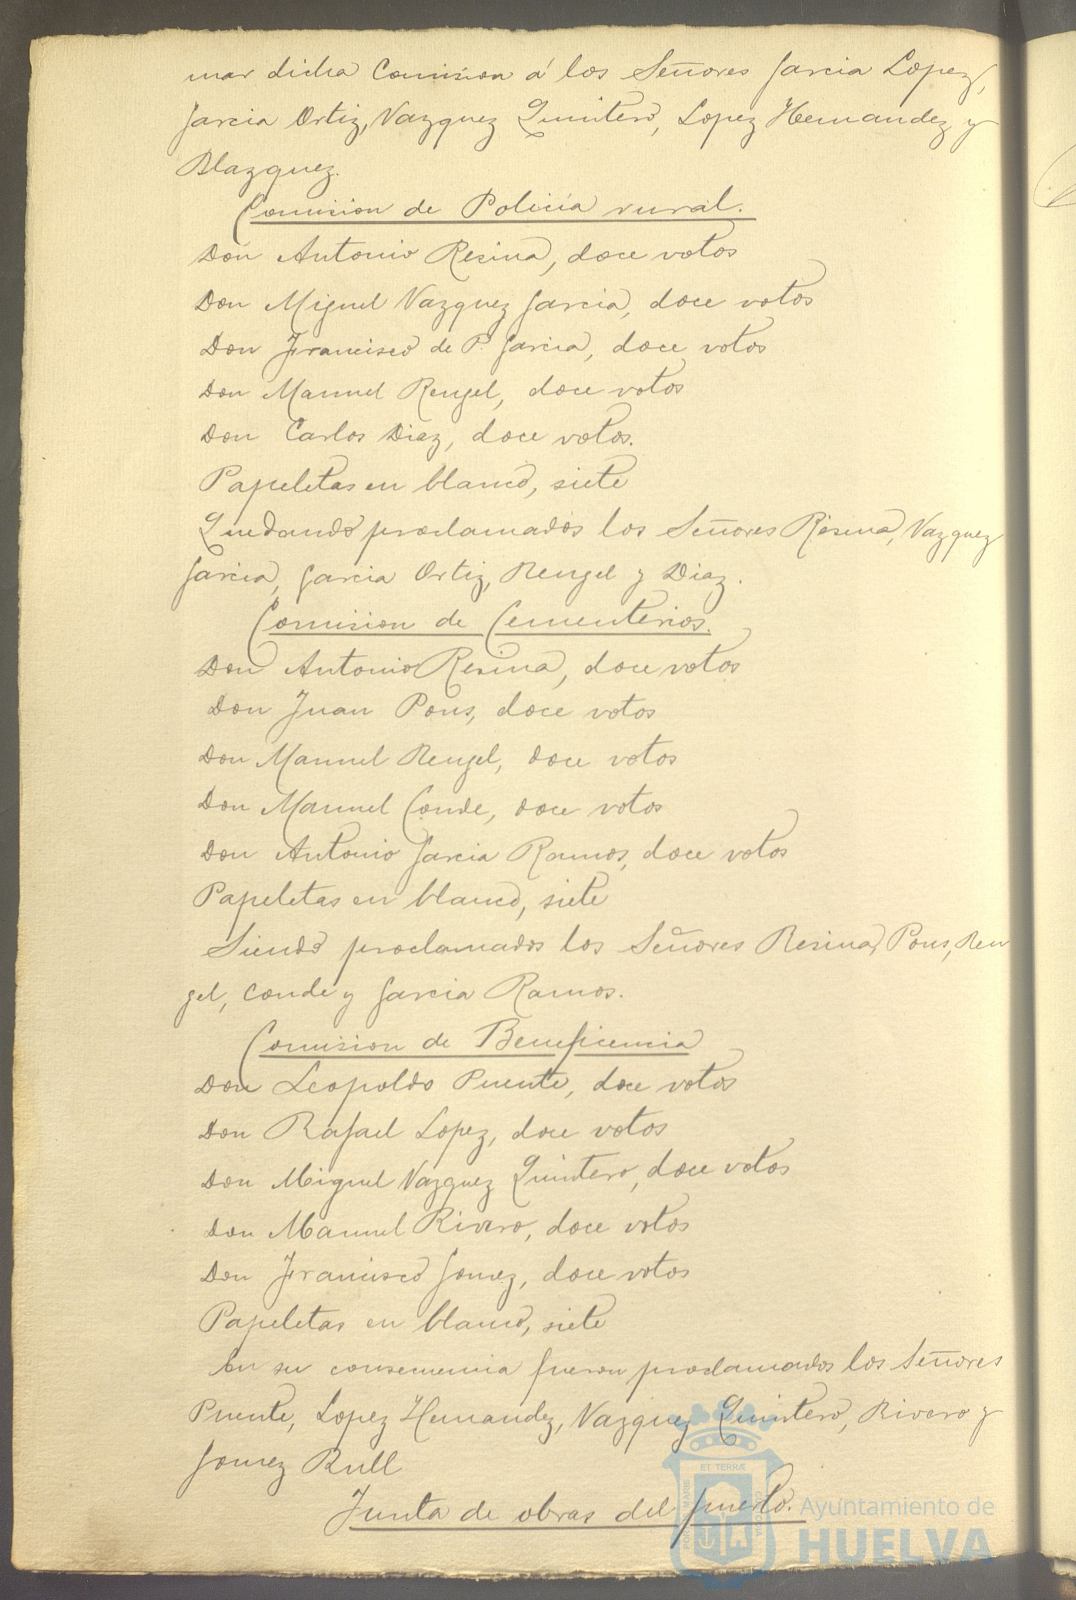 mar dicha Comision á los Señores Garcia Lopez,
Garcia Ortiz, Vazquez Quintero, Lopez Hernandez y
Blazquez.
Comision de Policía rural.
Don Antonio Resina, doce votos
Don Miguel Vazquez Garcia, doce votos
Don Francisco de P. Garcia, doce votos
Don Manuel Rengel, doce votos
Don Carlos Diaz, doce votos.
Papeletas en blanco, siete
Quedando proclamados los Señores Resina, Vazquez
Garcia, Garcia Ortiz, Rengel y Diaz.
Comision de Cementerios.
Don Antonio Resina, doce votos
Don Juan Pons, doce votos
Don Manuel Rengel, doce votos
Don Manuel Conde, doce votos
Don Antonio Garcia Ramos, doce votos
Papeletas en blanco, siete
Siendo proclamados los Señores Resina, Pons, Ren
gel, Conde y Garcia Ramos.
Comision de Beneficencia
Don Leopoldo Puente, doce votos
Don Rafael Lopez, doce votos
Don Miguel Vazquez Quintero, doce votos
Don Manuel Rivero, doce votos
Don Francisco Gomez, doce votos
Papeletas en blanco, siete
En su consecuencia fueron proclamados los Señores
Puente, Lopez Hernandez, Vazquez Quintero, Rivero y
Gomez Rull
Junta de obras del puerto.
ET TERRÆ
Ayuntamiento de
HUELVA